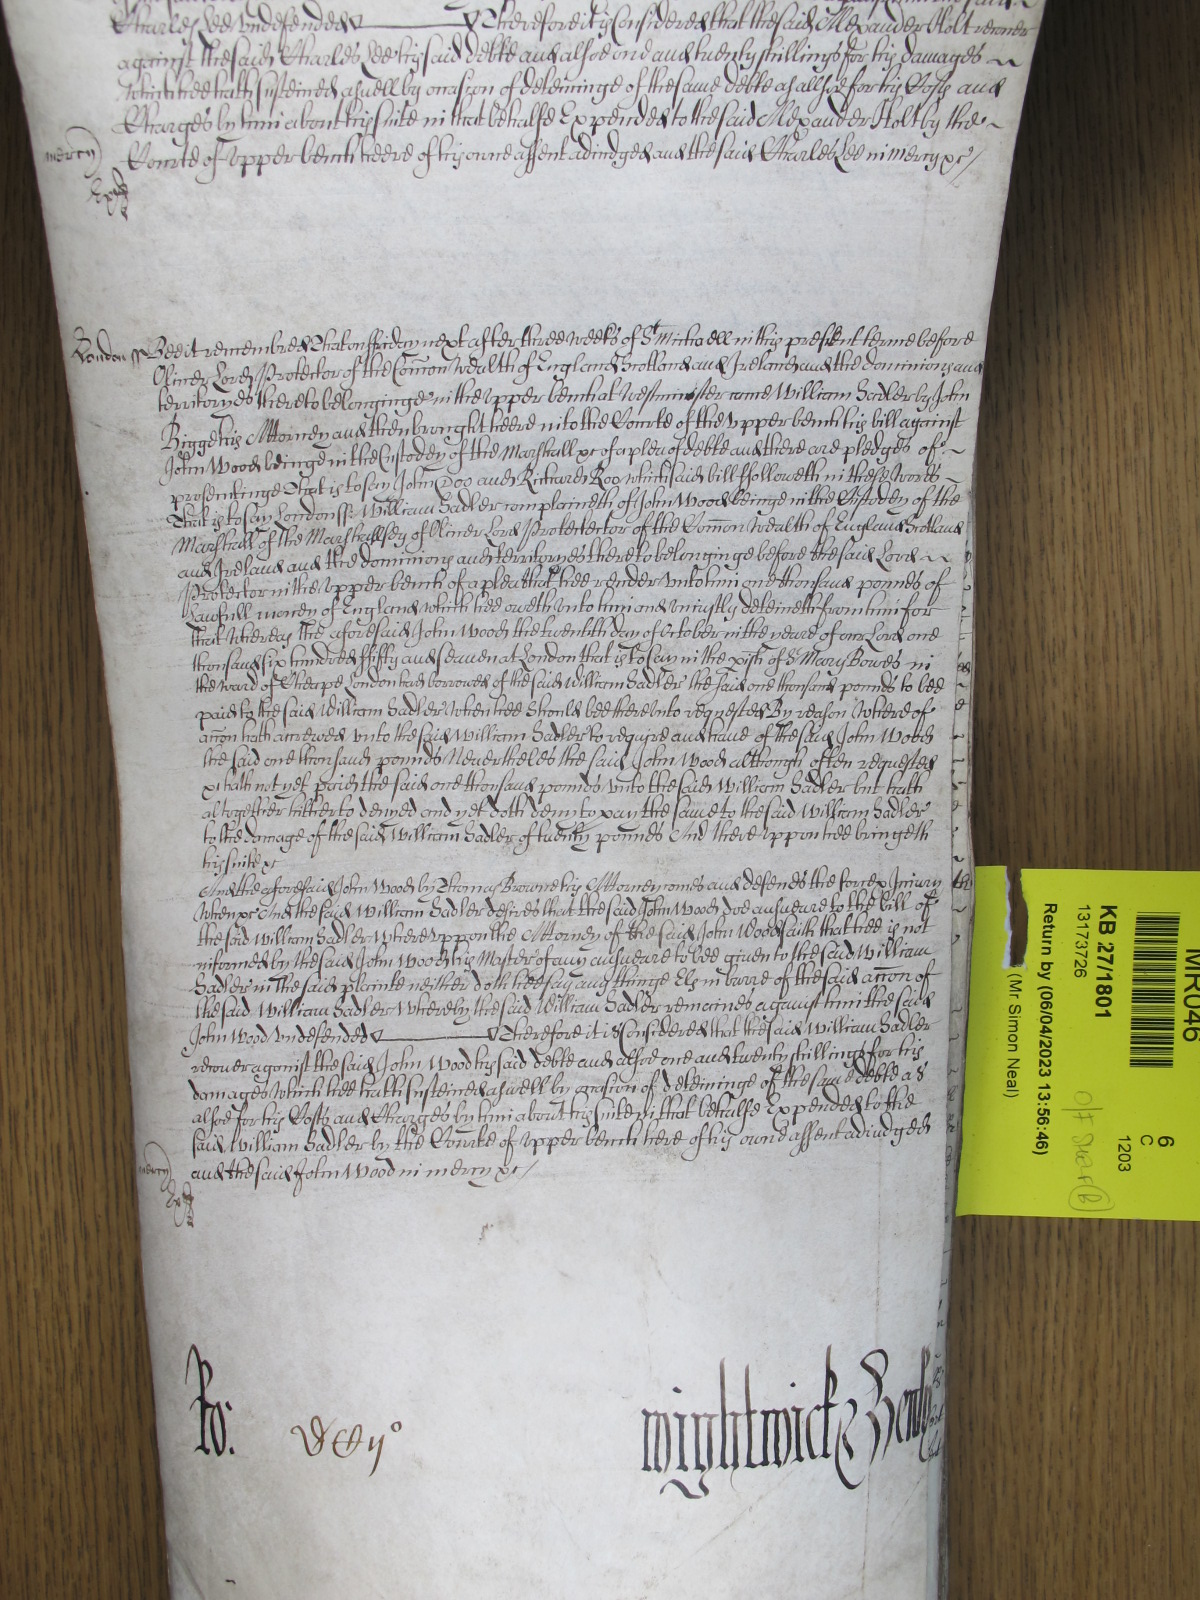 Charles Lee undefended Therefore it is Considered that the said Alexander Holt recover
against the said Charles Lee his said debte and alsoe one and twenty shillings for his damages
which hee hath susteined aswell by occasion of deteininge of the same debte as alsoe for his Costs and
Charges by him about his suite in that behalfe Expended to the said Alexander Holt by the
mercy Courte of Upper bench heere of his owne assent adiudged and the said Charles Lee in mercy &c/
London ss Bee it remembred That on ffriday next after three weeks of St Michaell in this present terme before
Oliver Lord Protector of the Com̃on Wealth of England Scotland and Ireland and the dominions and
territoryes thereto belonginge in the Upper bench at Westminster came William Sadler by John
Bigge his Attorney and then brought heere into the Courte of the Upper bench his bill against
John Wood beinge in the Custodey of the Marshall &c of a plea of debte and there are pledges of
prosecutinge That is to say John Doo and Richard Roo which said bill ffolloweth in these words
That is to say London ss: William Sadler complaineth of John Wood beinge in the Custodey of the
Marshall of the Marshallsey of Oliver Lord Protector of the Com̃on Wealth of England Scotland
and Ireland and the dominions and territoryes thereto belonginge before the said Lord
Protector in the Upper bench of a plea that hee render unto him one thousand pounds of
Lawfull money of England which hee oweth unto him and uniustly deteineth from him for
that Whereas the aforesaid John Wood the twentith day of October in the yeare of our Lord one
thousand six hundred ffifty and seaven at London that is to say in the p̱ish of St Mary Bowes in
the ward of Cheape London had borrowed of the said William Sadler the said one thousand pounds to bee
paid to the said William Sadler when hee should bee thereunto requested By reason whereof
acc̃on hath accrewed unto the said William Sadler to require and have of the said John Wood
the said one thousand pounds Neverthelesse the said John Wood although often requested
&c hath not yet paid the said one thousand pounds unto the said William Sadler but hath
altogether hitherto denyed and yet doth deny to pay the same to the said William Sadler
to the damage of the said William Sadler of twenty pounds And thereuppon hee bringeth
his suite &c
And the aforesaid John Wood by Thomas Browne his Attorney comes and defends the force & Iniury
when &c And the said William Sadler desires that the said John Wood doe answeare to the bill of
the said William Sadler Whereuppon the Attorney of the said John Wood saith that hee is not
informed by the said John Wood his Master of any answeare to bee given to the said William
Sadler in the said plainte neither doth hee say any thinge Els in barre of the said acc̃on of
the said William Sadler Whereby the said William Sadler remaines against him the said
John Wood undefended Therefore it is Considered that the said William Sadler
recover against the said John Wood his said debte and alsoe one and twenty shillings for his
damages which hee hath susteined aswell by occasion of deteininge of the same debte as
alsoe for his Costs and Charges by him about his suite in that behalfe Expended to the
said William Sadler by the Courte of Upper bench here of his owne assent adiudged
mercy and the said John Wood in mercy &c/
Ro:
Wightwick &
MR046
6
C
1203
KB 27/1801
13173726
Return by (06/04/2023 13:56:46)
(Mr Simon Neal)